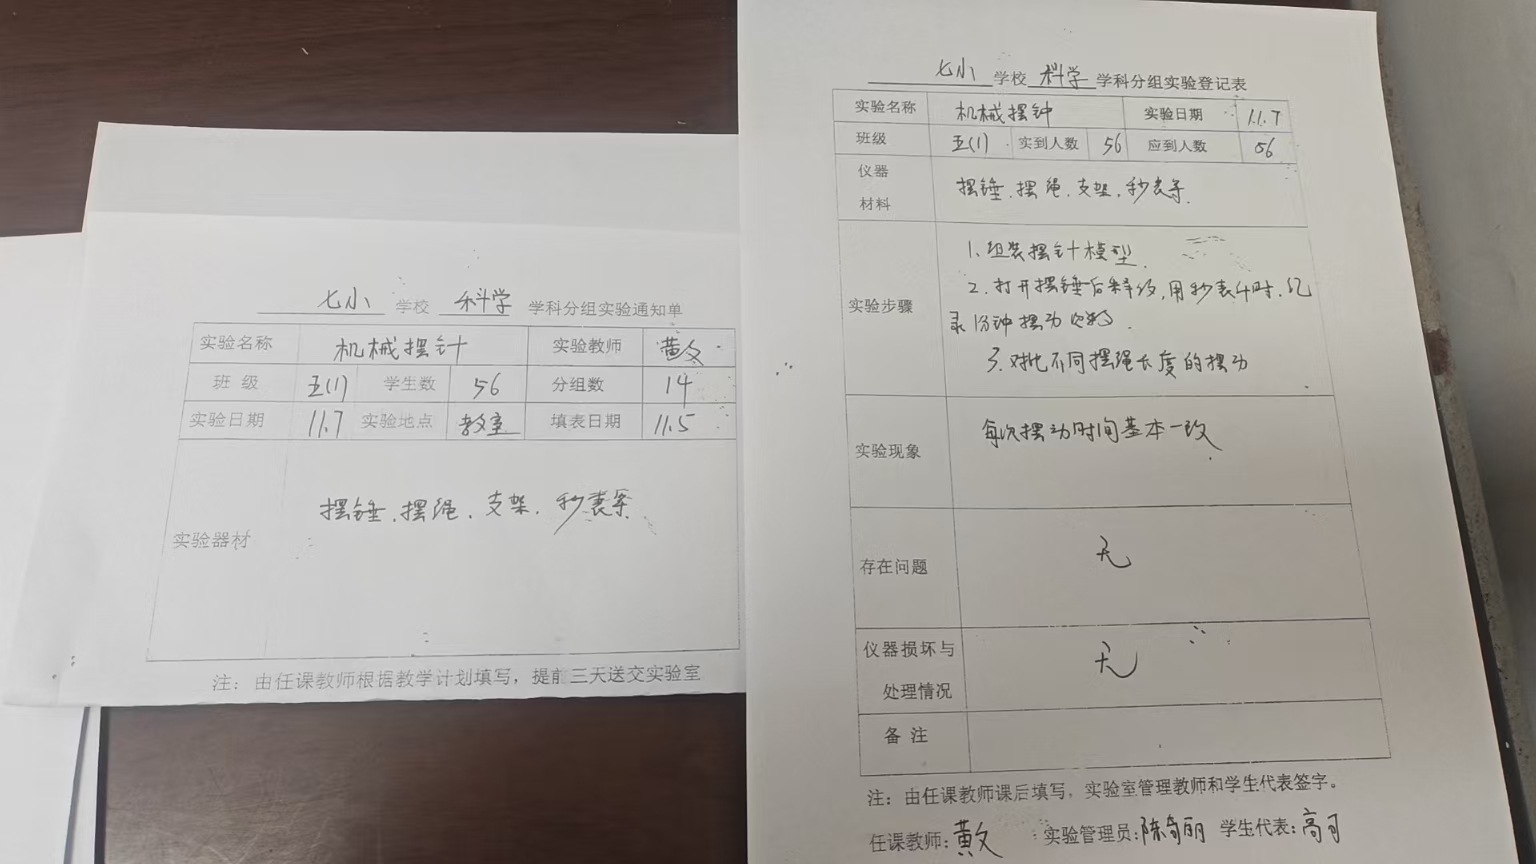 七小 学校 科学 学科分组实验通知单
实验名称 机械摆针 实验教师 黄文
班 级 五(1) 学生数 56 分组数 14
实验日期 11.7 实验地点 教室 填表日期 11.5
实验器材 摆锤、摆绳、支架、秒表等
注：由任课教师根据教学计划填写，提前三天送交实验室
七小 学校 科学 学科分组实验登记表
实验名称 机械摆钟 实验日期 11.7
班级 五(1) 实到人数 56 应到人数 56
仪器
材料
摆锤、摆绳、支架、秒表等.
实验步骤
1、组装摆针模型
2、打开摆锤后释放,用秒表计时,记
录1分钟摆动次数.
3、对比不同摆绳长度的摆动
实验现象 每次摆动时间基本一致
存在问题 无
仪器损坏与
处理情况
无
备 注
注：由任课教师课后填写，实验室管理教师和学生代表签字。
任课教师: 黄文 实验管理员: 陈奇丽 学生代表: 高可